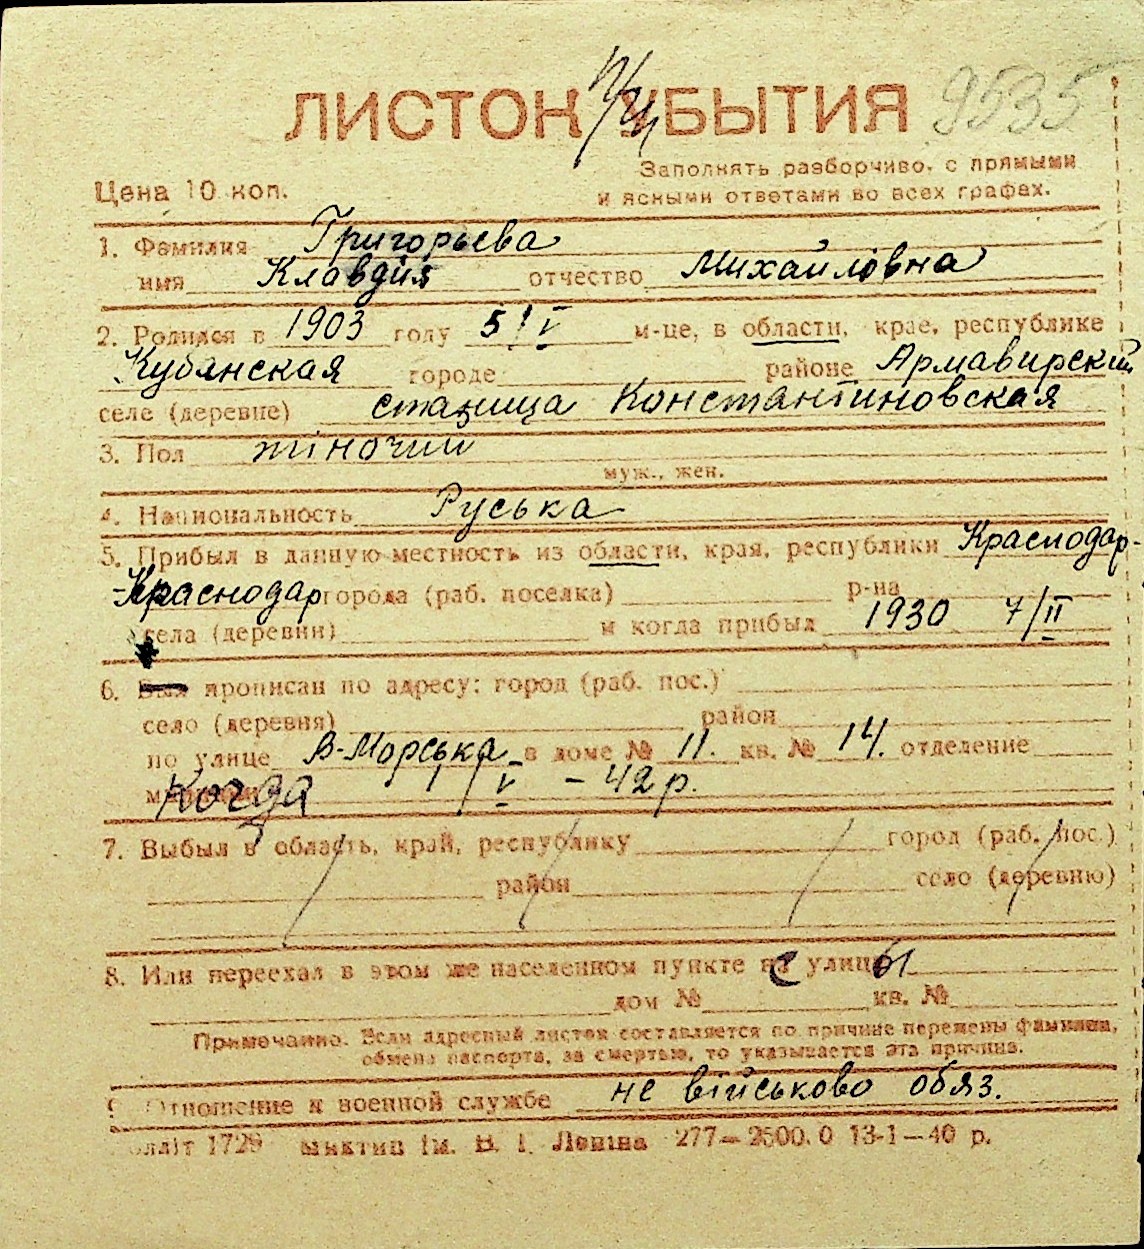 ЛИСТОК УБЫТИЯ 9535
Заполнять разборчиво, с прямыми
и ясными ответами во всех графах.
Цена 10 коп.
1. Фамилия Григорьева
имя Клавдия отчество Михайловна
2. Родился в 1903 году 5/V м-це, в области, крае, республике
Кубанская городе районе Армавирский
селе (деревне) станица Константиновская
3. Пол жіночий
муж., жен.
4. Национальность Руська
5. Прибыл в данную местность из области, края, республики Краснодар-
-Краснодар города (раб. поселка) р-на
села (деревни) и когда прибыл 1930 7/II
6. прописан по адресу: город (раб. пос.)
село (деревня) район
по улице В-Морська в доме № 11. кв. № 14. отделение
Когда 1/V - 42 р.
7. Выбыл в область, край, республику город (раб. пос.)
район село (деревню)
8. Или переехал в этом же населенном пункте с улицы
дом № кв. №
Примечание. Если адресный листок составляется по причине перемены фамилии,
обмена паспорта, за смертью, то указывается эта причина.
9. Отношение к военной службе не військово обяз.
1729 ім. В. І. Леніна 277—2500.0 13-1—40 р.